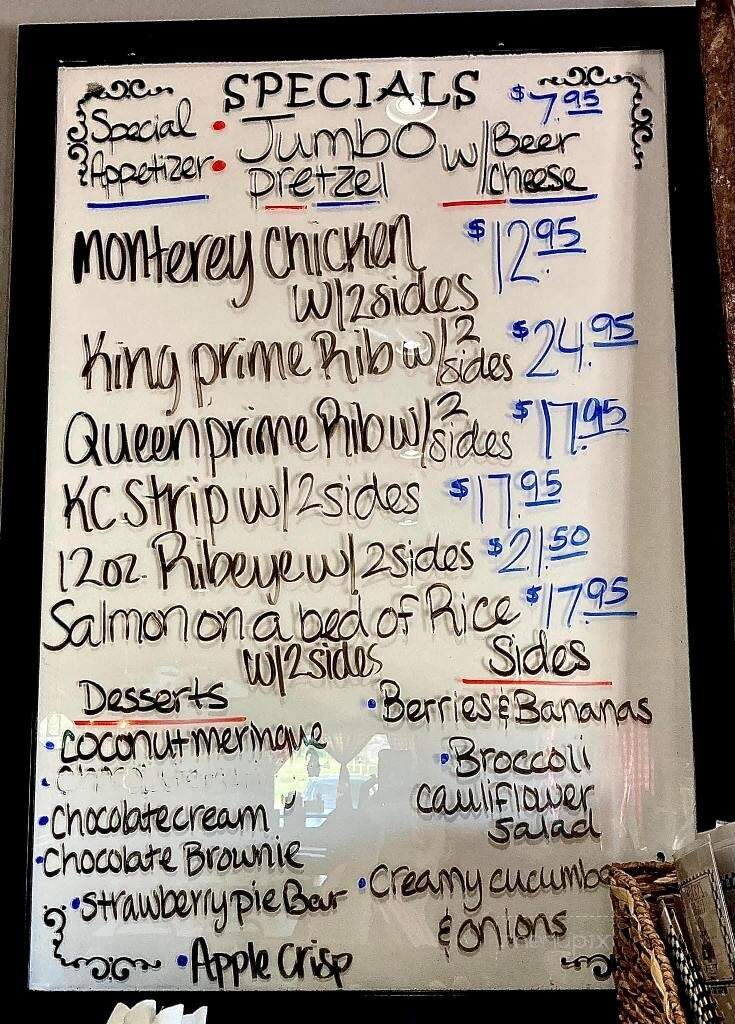 SPECIALS
$7.95
Special Appetizer: Jumbo Pretzel w/ Beer Cheese
Monterey Chicken $12.95
w/2sides
King prime Rib w/2 sides $24.95
Queen prime Rib w/2 sides $17.95
KC Strip w/2sides $17.95
12oz. Ribeye w/2sides $21.50
Salmon on a bed of Rice $17.95
w/2sides
Desserts
•coconut meringue
•Chocolate cream
•Chocolate Brownie
•strawberry pie Bar
•Apple Crisp
Sides
•Berries & Bananas
•Broccoli
cauliflower
salad
•Creamy
& onions